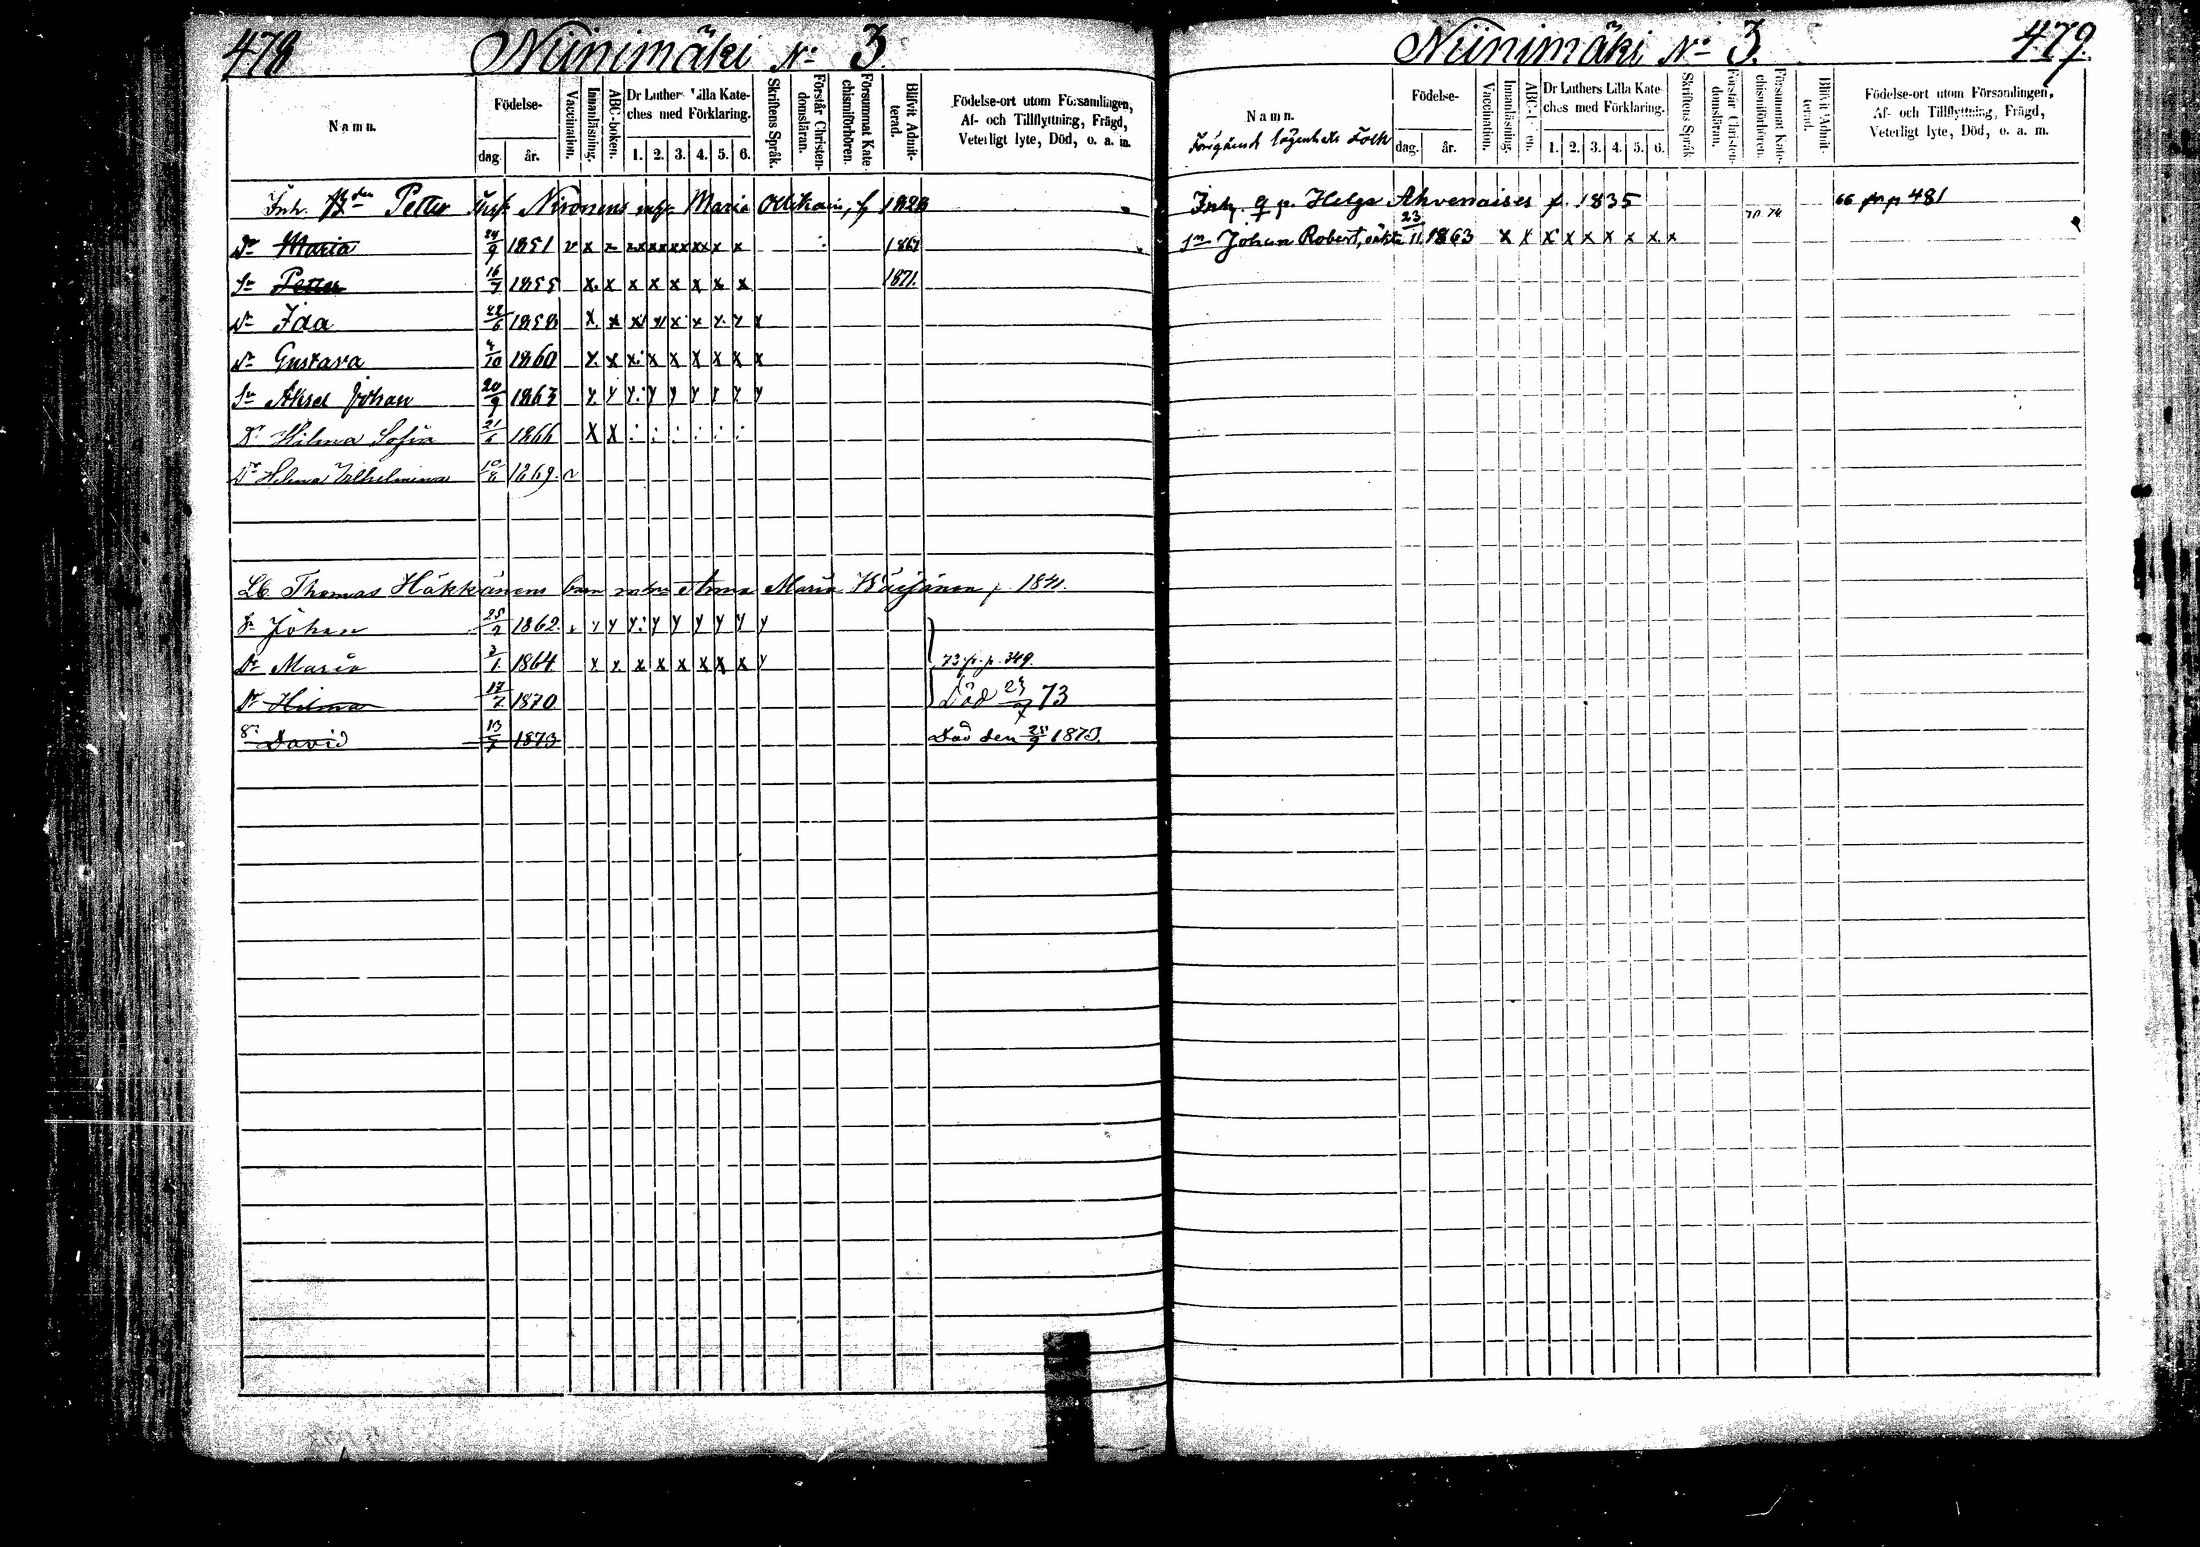 478 Niinimäki No 3.
Namn. Födelse- dag. år. Vaccination. Innanläsning. ABC-boken. Dr Luthers Lilla Kate-ches med Förklaring. 1. 2. 3. 4. 5. 6. Skriftens Språk. Förstår Christen-domsläran. Försummat Kate-chismiförhören. Blifvit Admit-terad. Födelse-ort utom Församlingen, Af- och Tillflyttning, Frägd, Veterligt lyte, Död, o. a. m.
Inh. Petter Nironens Maria Ollikain, f 1828
Dr Maria 24/9 1851 v x x x x x x x x x x 1867
Sn Petter 16/7 1855 x x x x x x x x 1871.
Dr Ida 1858 x x x x x x x x x
Dr Gustava 4/10 1860 x x x x x x x x x
Sn Aksel Johan 20/9 1863 y y y y y y y y y
Dr Hilma Sofia 21/6 1866 X X : : : : : :
Dr Helena Wilhelmina 10/6 1869. v
Lb Thomas Häkkänens barn Anna Maria Wäisänen f. 1841.
Sn Johan 25/2 1862. v y y y y y y y y y
Dr Maria 3/1 1864 x x x x x x x x y 73 p. p. 349.
Dr Hilma 17/7 1870 Död 73
Sn David 13/7 1873 Död den 28/9 1873.
Niinimäki No 3. 479.
Namn. Föregående lägenhets Folk Födelse- dag. år. Vaccination. Innanläsning. ABC-b en. Dr Luthers Lilla Kate-ches med Förklaring. 1. 2. 3. 4. 5. 6. Skriftens Språk Förstår Christen-domsläran. Försummat Kate-chismiförhören. Blifvit Admit-terad. Födelse-ort utom Församlingen, Af- och Tillflyttning, Frägd, Veterligt lyte, Död, o. a. m.
Inh. Q p. Helga Ahvenaises f. 1835 66 fr p 481
Sn Johan Robert, oäkta 23/11 1863 x x x x x x x x x 70 74